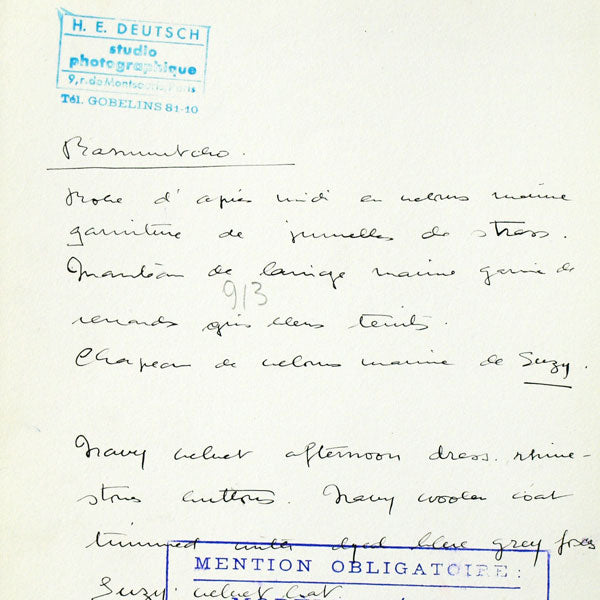 H. E. DEUTSCH
studio
photographique
9, r. de Montsouris, Paris
Tél. GOBELINS 81-10
Robe d'après midi en velours marine
garniture de jumelles de strass.
Manteau de lainage marine garni de
913
renards gris bleus teints.
Chapeau de velours marine de Suzy.
Navy velvet afternoon dress. rhine-
stone buttons. Navy woolen coat
trimmed with dyed blue grey foxes
MENTION OBLIGATOIRE:
Suzy. velvet hat.